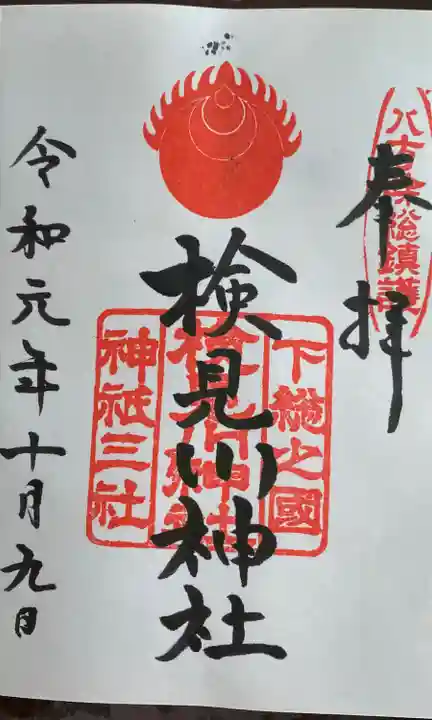 奉拝
八方除総鎮護
検見川神社
下總之國
神祇三社
令和元年十月九日